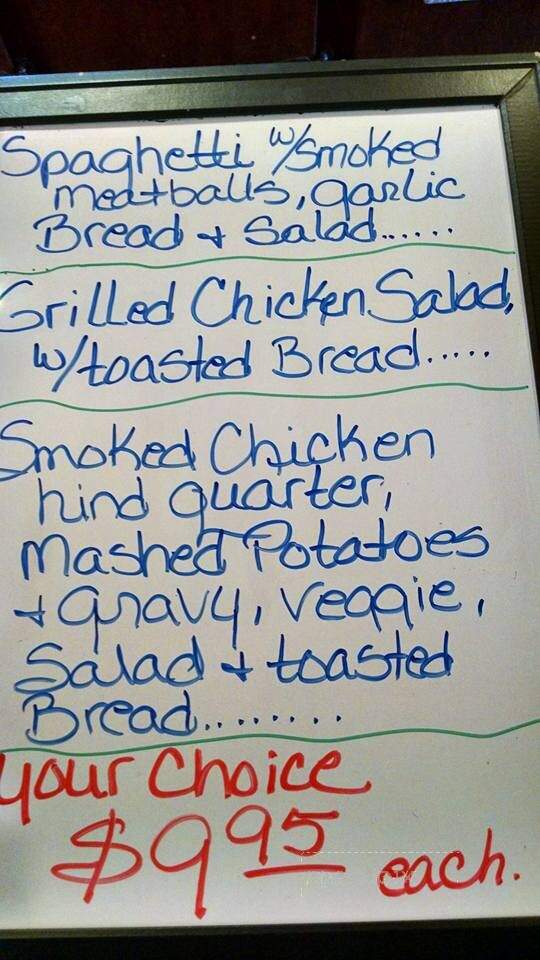 Spaghetti w/smoked
meatballs, garlic
Bread + Salad......
Grilled Chicken Salad,
w/toasted Bread.....
Smoked Chicken
hind quarter,
Mashed Potatoes
+ gravy, veggie,
Salad + toasted
Bread........
your choice
$9 95 each.